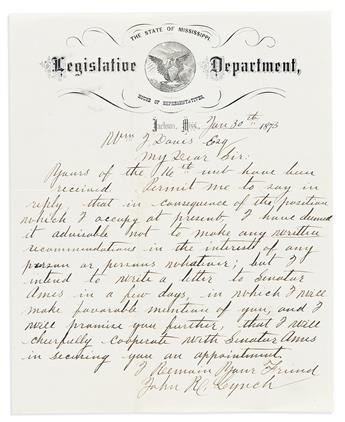 THE STATE OF MISSISSIPPI
Legislative Department,
HOUSE OF REPRESENTATIVES.
Jackson, Miss., Jan 30th 1873
Wm J Davis Esq
My Dear Sir:
Yours of the 16th inst have been
received. Permit me to say in
reply, that in consequence of the position
which I occupy at present, I have deemed
it advisable not to make any written
recommendations in the interest of any
person or persons whatever; but I
intend to write a letter to Senator
Ames in a few days, in which I will
make favorable mention of you, and I
will promise you further, that I will
cheerfully cooperate with Senator Ames
in securing you an appointment.
I Remain Your Friend
John R. Lynch